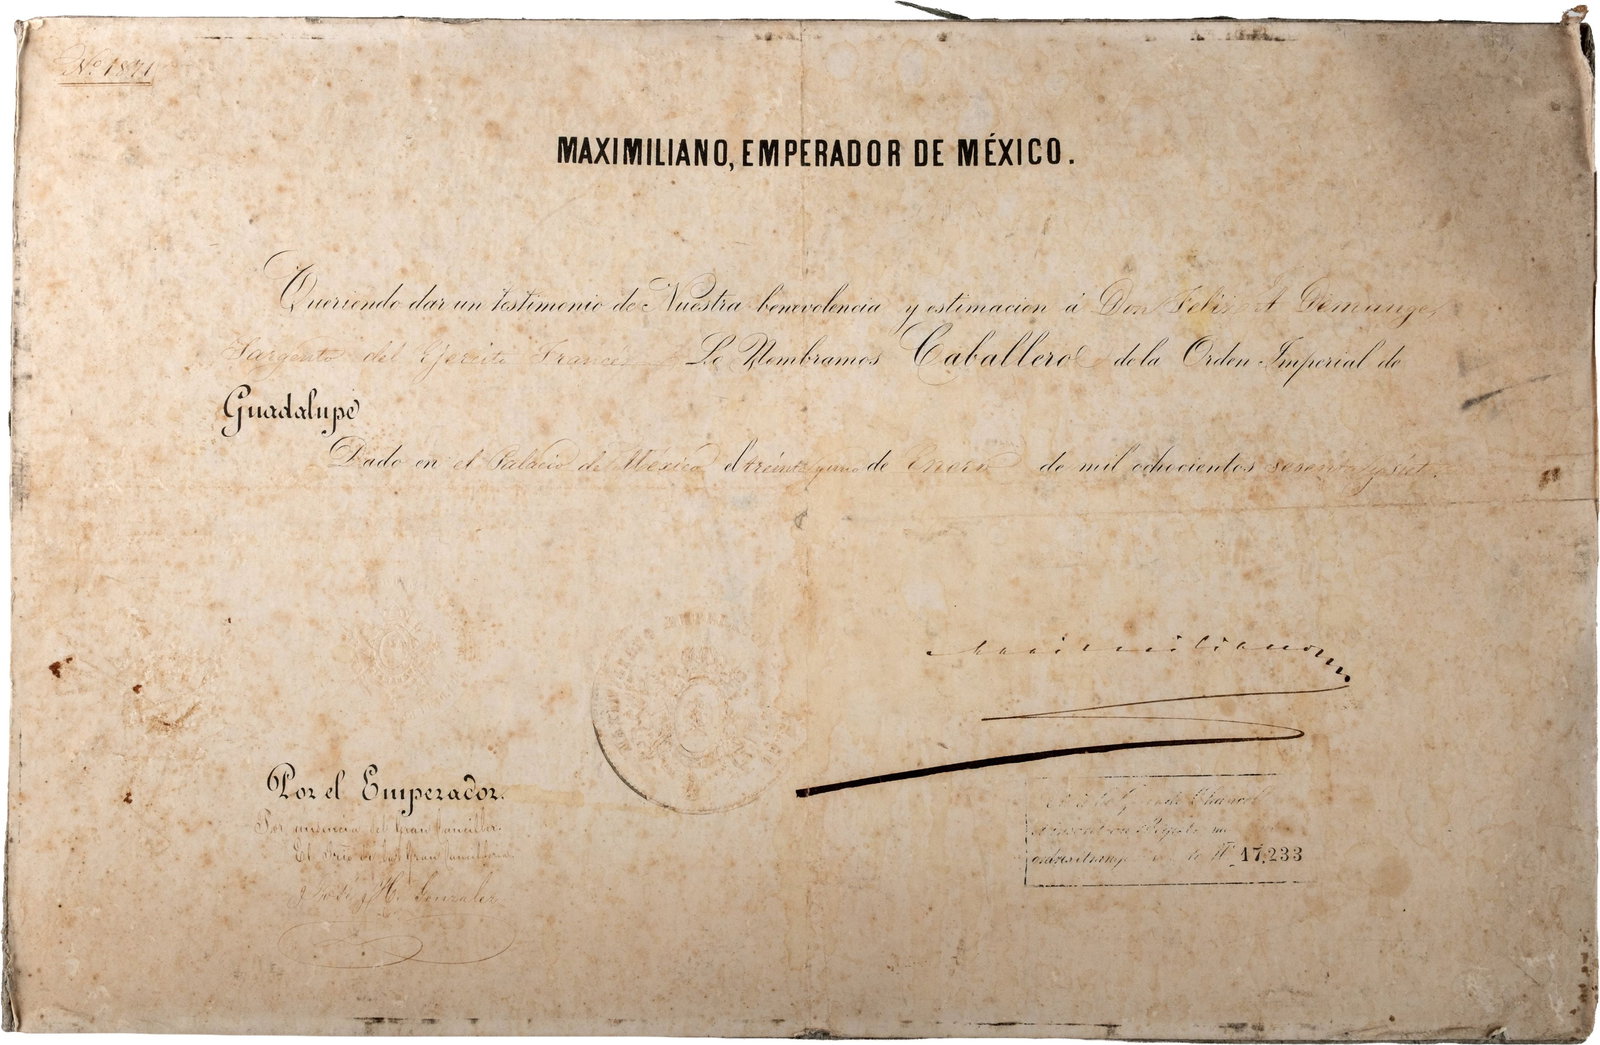 No. 1871
MAXIMILIANO, EMPERADOR DE MÉXICO.
Queriendo dar un testimonio de Nuestra benevolencia y estimacion á Don Felix A Demange,
Sargento del Ejército Francés Le Nombramos Caballero de la Orden Imperial de
Guadalupe
Dado en el Palacio de México el treinta y uno de Enero de mil ochocientos sesenta y siete.
Maximiliano
Por el Emperador.
Por ausencia del Gran Canciller.
El Srio de la Gran Cancillería
José H. Gonzalez
No. 17,233